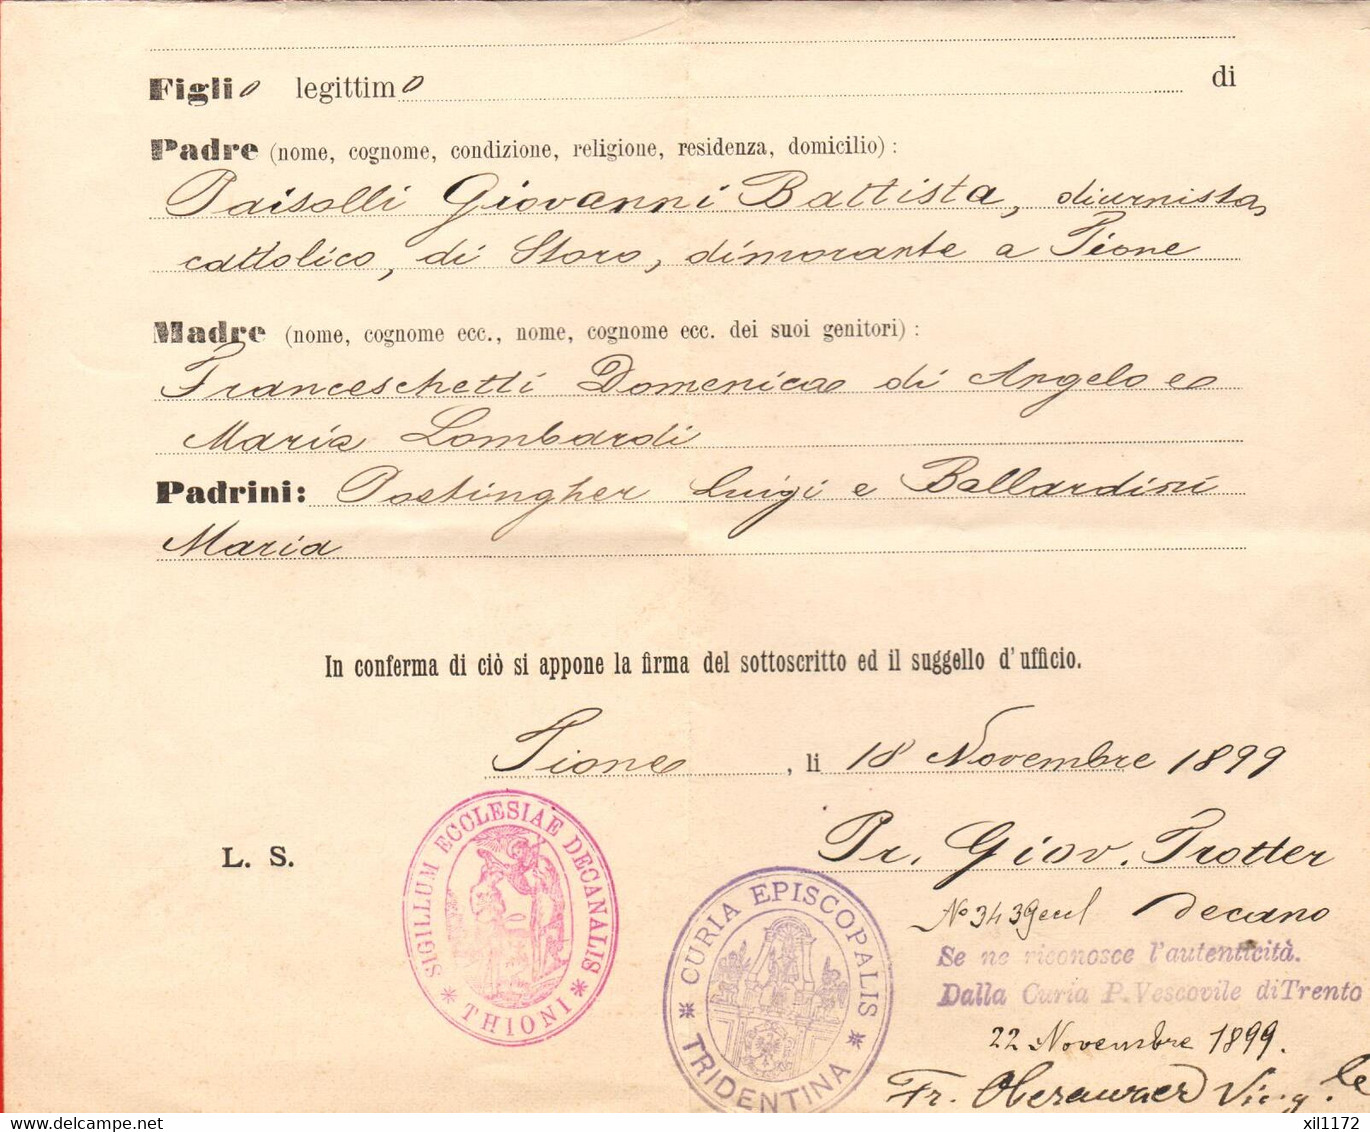 Figlio legittimo di
Padre (nome, cognome, condizione, religione, residenza, domicilio) :
Paisolli Giovanni Battista, diurnista,
cattolico, di Storo, dimorante a Tione
Madre (nome, cognome ecc., nome, cognome ecc. dei suoi genitori) :
Franceschetti Domenica di Angelo e
Maria Lombardi
Padrini: Postingher Luigi e Ballardini
Maria
In conferma di ciò si appone la firma del sottoscritto ed il suggello d'ufficio.
Tione , li 18 Novembre 1899
L. S.
SIGILLUM ECCLESIAE DECANALIS * THIONI *
Pr. Giov. Trotter
No 3439 Decano
CURIA EPISCOPALIS * TRIDENTINA *
Se ne riconosce l'autenticità.
Dalla Curia P. Vescovile di Trento
22 Novembre 1899.
Fr. Oberauzer Vic. g.le
delcampe.net
xil1172